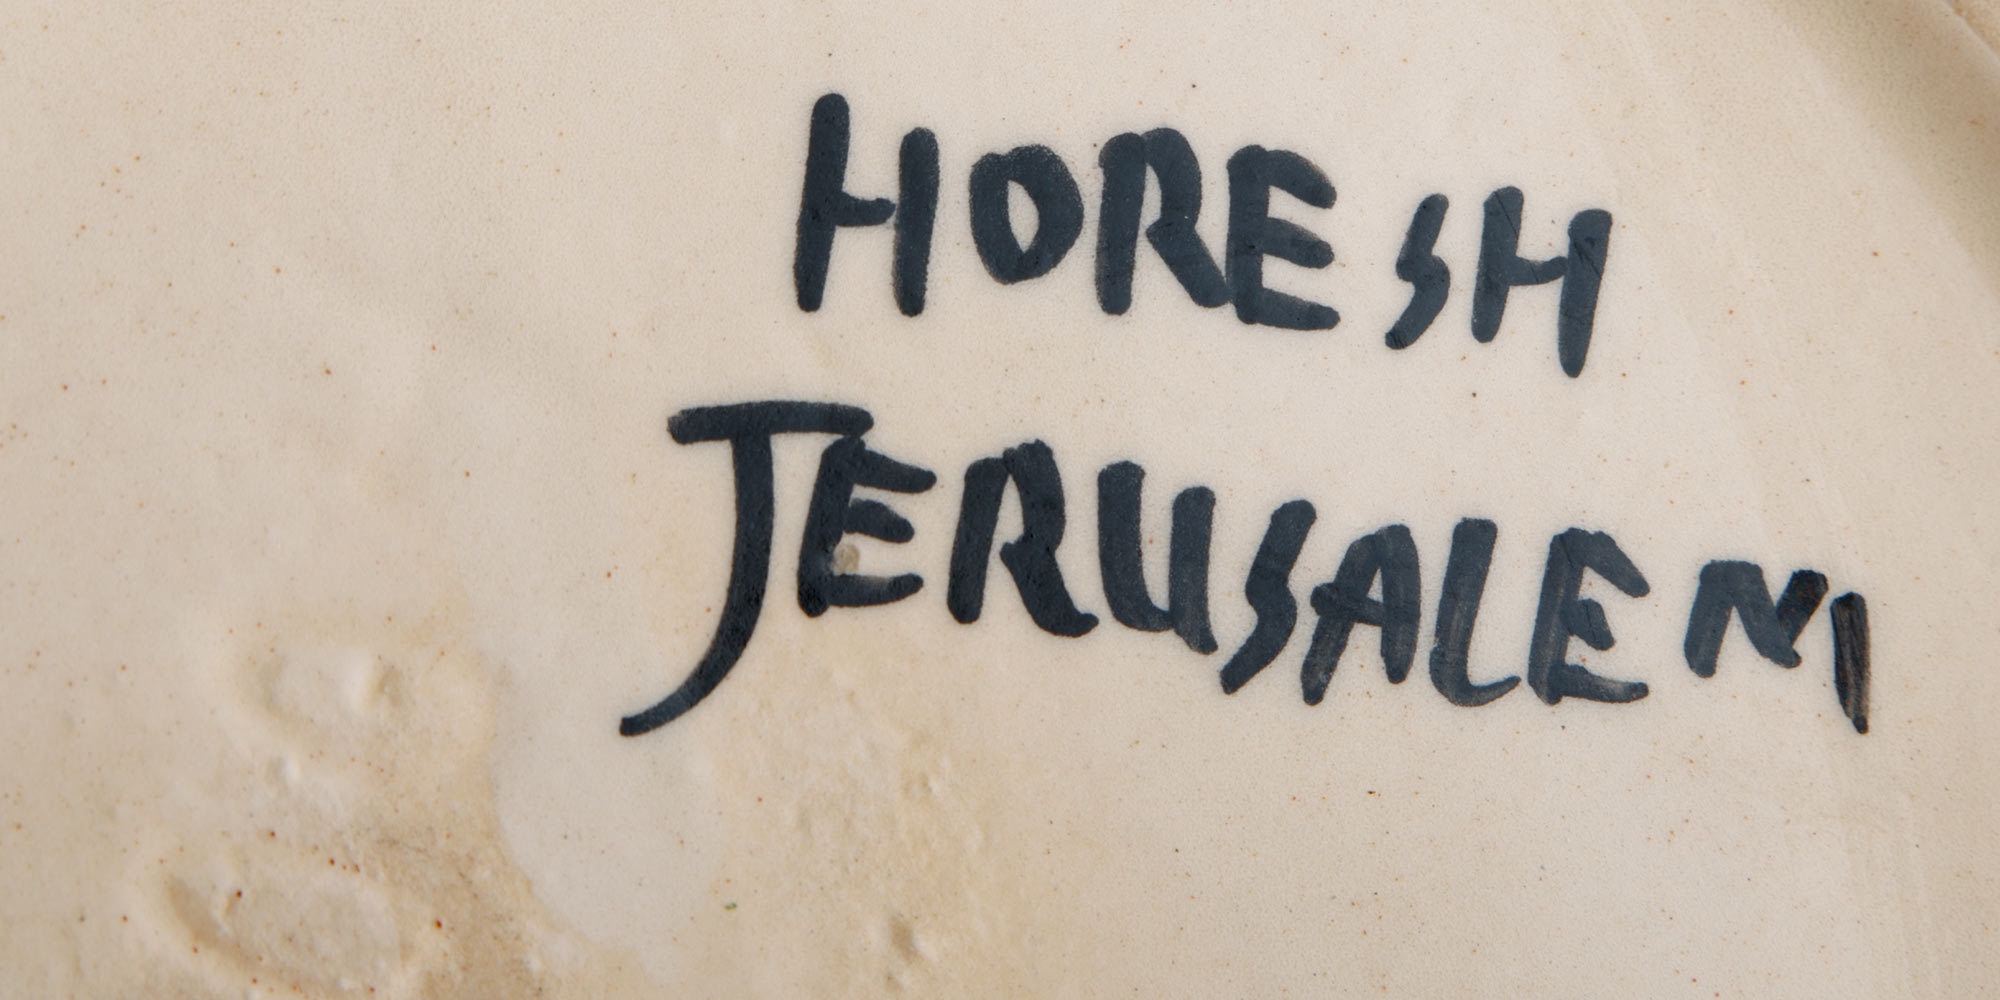 HORESH
JERUSALEM